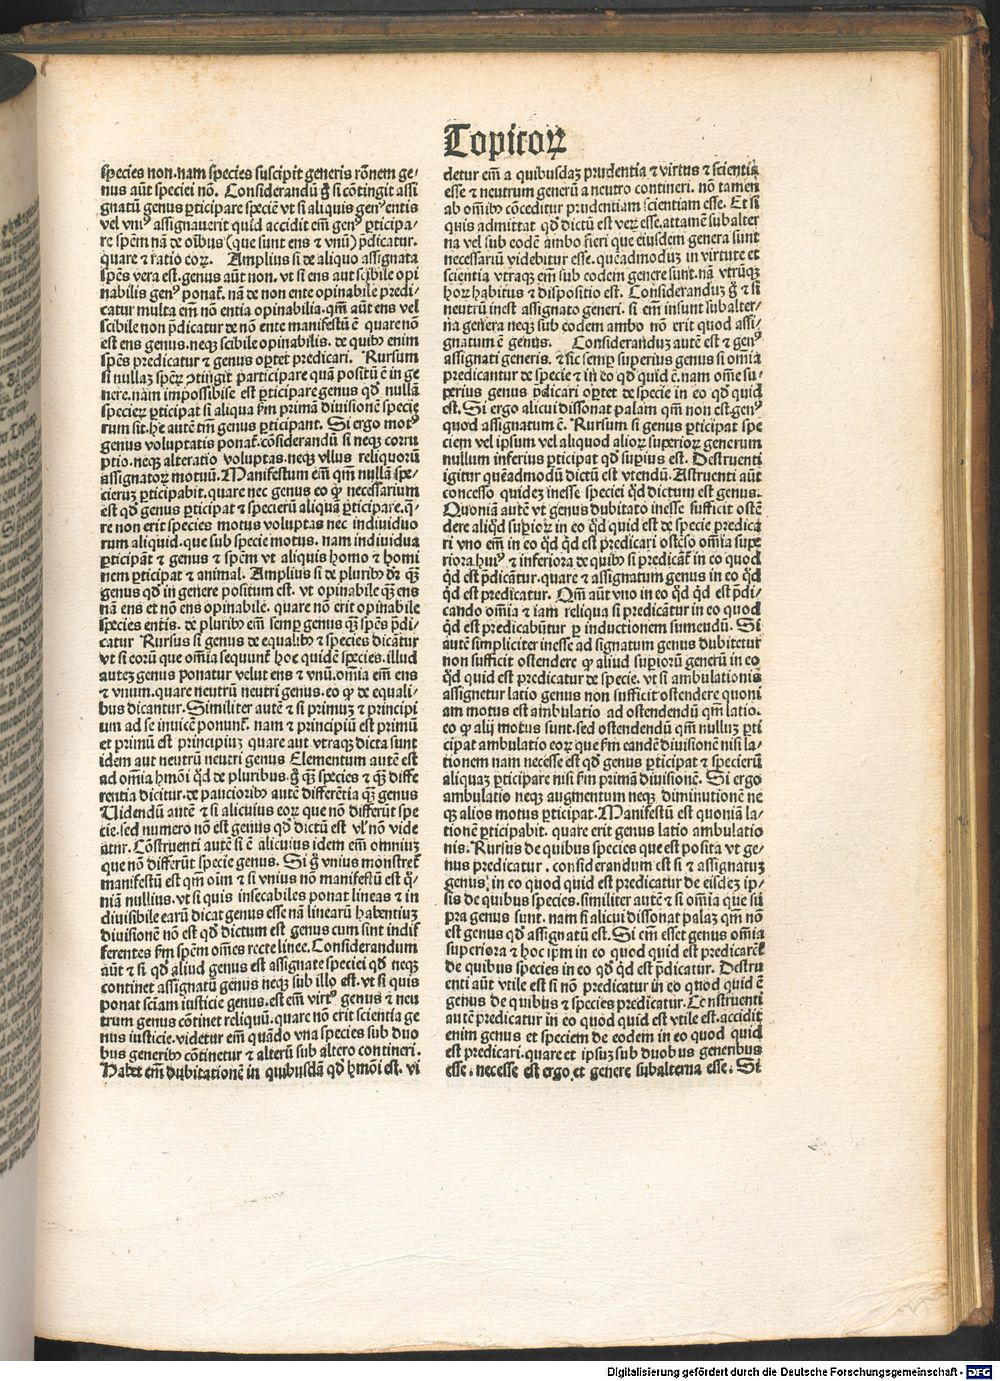 Topicoꝝ
species non.nam species suscipit generis rõnem ge-
nus aũt speciei nõ. Considerandũ g̃ si cõtingit assi
gnatũ genus ꝑticipare speciẽ vt si aliquis genꝰ entis
vel vniꝰ assignauerit quid accidit em̃ genꝰ ꝑticipa-
re spẽm nã de oĩbus (que sunt ens ⁊ vnũ) p̃dicatur.
quare ⁊ ratio eoꝝ. Amplius si de aliquo assignata
sp̃es vera est.genus aũt non.vt si ens aut scibile opi
nabilis genꝰ ponat̃. nã de non ente opinabile predi-
catur multa em̃ nõ entia opinabilia.qm̃ aũt ens vel
scibile non p̃dicatur de nõ ente manifestũ ẽ quare nõ
est ens genus.neqꝫ scibile opinabilis. de quibꝰ enim
sp̃es predicatur ⁊ genus oꝑtet predicari. Rursum
si nullaꝫ spẽꝝ ↄtingit participare quã positũ ẽ in ge
nere.nam impossibile est ꝑticipare genus qđ nullã
specieꝝ ꝑticipat si aliqua ẜm primã diuisionẽ specie
rum sit.he autẽ tm̃ genus ꝑticipant. Si ergo motꝰ
genus voluptatis ponat̃.cõsiderandũ si neqꝫ corru
ptio.neqꝫ alteratio voluptas.neqꝫ vllus reliquorũ
assignatoꝝ motuũ.Manifestum em̃ qm̃ nullã spe-
cierũ ꝑticipabit.quare nec genus eo ꝙ necessarium
est qđ genus ꝑticipat ⁊ specierũ aliquã ꝑticipare.q̃-
re non erit species motus voluptas nec indiuiduo
rum aliquid.que sub specie motus. nam indiuidua
ꝑticipãt ⁊ genus ⁊ spẽm vt aliquis homo ⁊ homi
nem ꝑticipat ⁊ animal. Amplius si de pluribꝰ dr̃ q̃ꝫ
genus qđ in genere positum est. vt opinabile q̃ꝫ ens
nã ens et nõ ens opinabile. quare nõ erit opinabile
species entis. de pluribꝰ em̃ semꝑ genus q̃ꝫ sp̃es p̃di-
catur Rursus si genus de equalibꝰ ⁊ species dicãtur
vt si eorũ que omĩa sequunt̃ hoc quidẽ species.illud
autẽ genus ponatur velut ens ⁊ vnũ.omĩa em̃ ens
⁊ vnum.quare neutrũ neutri genus.eo ꝙ de equali-
bus dicantur. Similiter autẽ ⁊ si primuꝫ ⁊ principi
um ad se inuicẽ ponunt̃. nam ⁊ principiũ est primũ
et primũ est principiuꝫ quare aut vtraqꝫ dicta sunt
idem aut neutrũ neutri genus Elementum autẽ est
ad omĩa hmõi qđ de pluribus.g̃ q̃ꝫ species ⁊ q̃ꝫ diffe
rentia dicitur.de paucioribꝰ autẽ differẽtia q̃ꝫ genus
Uidendũ autẽ ⁊ si alicuius eoꝝ que nõ differũt spe
cie.sed numero nõ est genus qđ dictũ est vl̃ nõ vide
atur. Cõstruenti autẽ si ẽ alicuius idem em̃ omniuꝫ
que nõ differũt specie genus. Si g̃ vnius monstret̃
manifestũ est qm̃ oĩm ⁊ si vnius nõ manifestũ est q̃-
niã nullius.vt si quis insecabiles ponat lineas ⁊ in
diuisibile earũ dicat genus esse nã linearũ habentiuꝫ
diuisionẽ nõ est qđ dictum est genus cum sint indif
ferentes ẜm spẽm omẽs recte linee.Considerandum
aũt ⁊ si qđ aliud genus est assignate speciei qđ neqꝫ
continet assignatũ genus neqꝫ sub illo est.vt si quis
ponat sciam iusticie genus.est em̃ virtꝰ genus ⁊ neu
trum genus cõtinet reliquũ.quare nõ erit scientia ge
nus iusticie.videtur em̃ quãdo vna species sub duo
bus generibꝰ cõtinetur ⁊ alterũ sub altero contineri.
Habet em̃ dubitationẽ in quibusdã qđ hmõi est. vi
detur em̃ a quibusdaꝫ prudentia ⁊ virtus ⁊ scientia
esse ⁊ neutrum generũ a neutro contineri. nõ tamen
ab omĩbꝰ cõceditur prudentiam scientiam esse. Et si
quis admittat qđ dictũ est veꝝ esse.attamẽ subalter
na vel sub eodẽ ambo fieri que eiusdem genera sunt
necessariũ videbitur esse. quẽadmoduꝫ in virtute et
scientia vtraqꝫ em̃ sub eodem genere sunt.nã vtrũqꝫ
hoꝝ habitus ⁊ dispositio est. Considerandũ g̃ ⁊ si
neutrũ inest assignato generi. si em̃ insunt subalter-
na genera neqꝫ sub eodem ambo nõ erit quod assi-
gnatum ẽ genus. Considerandũ autẽ est ⁊ genꝰ
assignati generis. ⁊ sic semꝑ superius genus si omĩa
predicantur de specie ⁊ in eo qđ quid ẽ.nam omẽ su-
perius genus p̃dicari oꝑtet de specie in eo qđ quid
est. Si ergo alicui dissonat palam qm̃ non est genꝰ
quod assignatum ẽ. Rursum si genus ꝑticipat spe
ciem vel ipsum vel aliquod alioꝝ superioꝝ generum
nullum inferius ꝑticipat qđ suꝑius est. Destruenti
igitur quẽadmodũ dictũ est vtendũ. Astruenti aũt
concesso quidem inesse speciei qđ dictum est genus.
Quoniã autẽ vt genus dubitato inesse sufficit ostẽ
dere aliqđ suꝑioꝝ in eo qđ quid est de specie predica
ri vno em̃ in eo qđ qđ est predicari ostẽso omĩa supe
riora.huiꝰ ⁊ inferiora de quibꝰ si predicãt̃ in eo quod
qđ est p̃dicãtur.quare ⁊ assignatum genus in eo qđ
qđ est predicatur. Qm̃ aũt vno in eo qđ qđ est p̃di-
cando omĩa ⁊ iam reliqua si predicãtur in eo quod
qđ est predicabũtur ꝑ inductionem sumendũ. Si
autẽ simpliciter inesse ad signatum genus dubitetur
non sufficit ostendere ꝙ aliud suꝑiorũ generũ in eo
qđ quid est predicatur de specie. vt si ambulationis
assignetur latio genus non sufficit ostendere quoni
am motus est ambulatio ad ostendendũ qm̃ latio.
eo ꝙ alij motus sunt.sed ostendendũ qm̃ nulluꝫ ꝑti
cipat ambulatio eoꝝ que ẜm eandẽ diuisionẽ nisi la-
tionem nam necesse est qđ genus ꝑticipat ⁊ specierũ
aliquaꝫ ꝑticipare nisi ẜm primã diuisionẽ. Si ergo
ambulatio neqꝫ augmentum neqꝫ diminutionẽ ne
qꝫ alios motus ꝑticipat.Manifestũ est quoniã la-
tionẽ ꝑticipabit. quare erit genus latio ambulatio
nis.Rursus de quibus species que est posita vt ge-
nus predicatur.considerandum est si ⁊ assignatuꝫ
genus, in eo quod quid est predicatur de eisdeꝫ ip-
sis de quibus species.similiter autẽ ⁊ si omĩa que su
pra genus sunt. nam si alicui dissonat palaꝫ qm̃ nõ
est genus qđ assignatũ est.Si em̃ esset genus omĩa
superiora ⁊ hoc ipm̃ in eo quod quid est predicaret̃
de quibus species in eo qđ qđ est p̃dicatur. Destru
enti aũt vtile est si nõ predicatur in eo quod quid ẽ
genus de quibus ⁊ species predicatur.Construenti
autẽ predicatur in eo quod quid est vtile est.accidit
enim genus et speciem de eodem in eo quod quid
est predicari.quare et ipsuꝫ sub duobus generibus
esse. necesse est ergo.et genere subalterna esse. Si
Digitalisierung gefördert durch die Deutsche Forschungsgemeinschaft - DFG